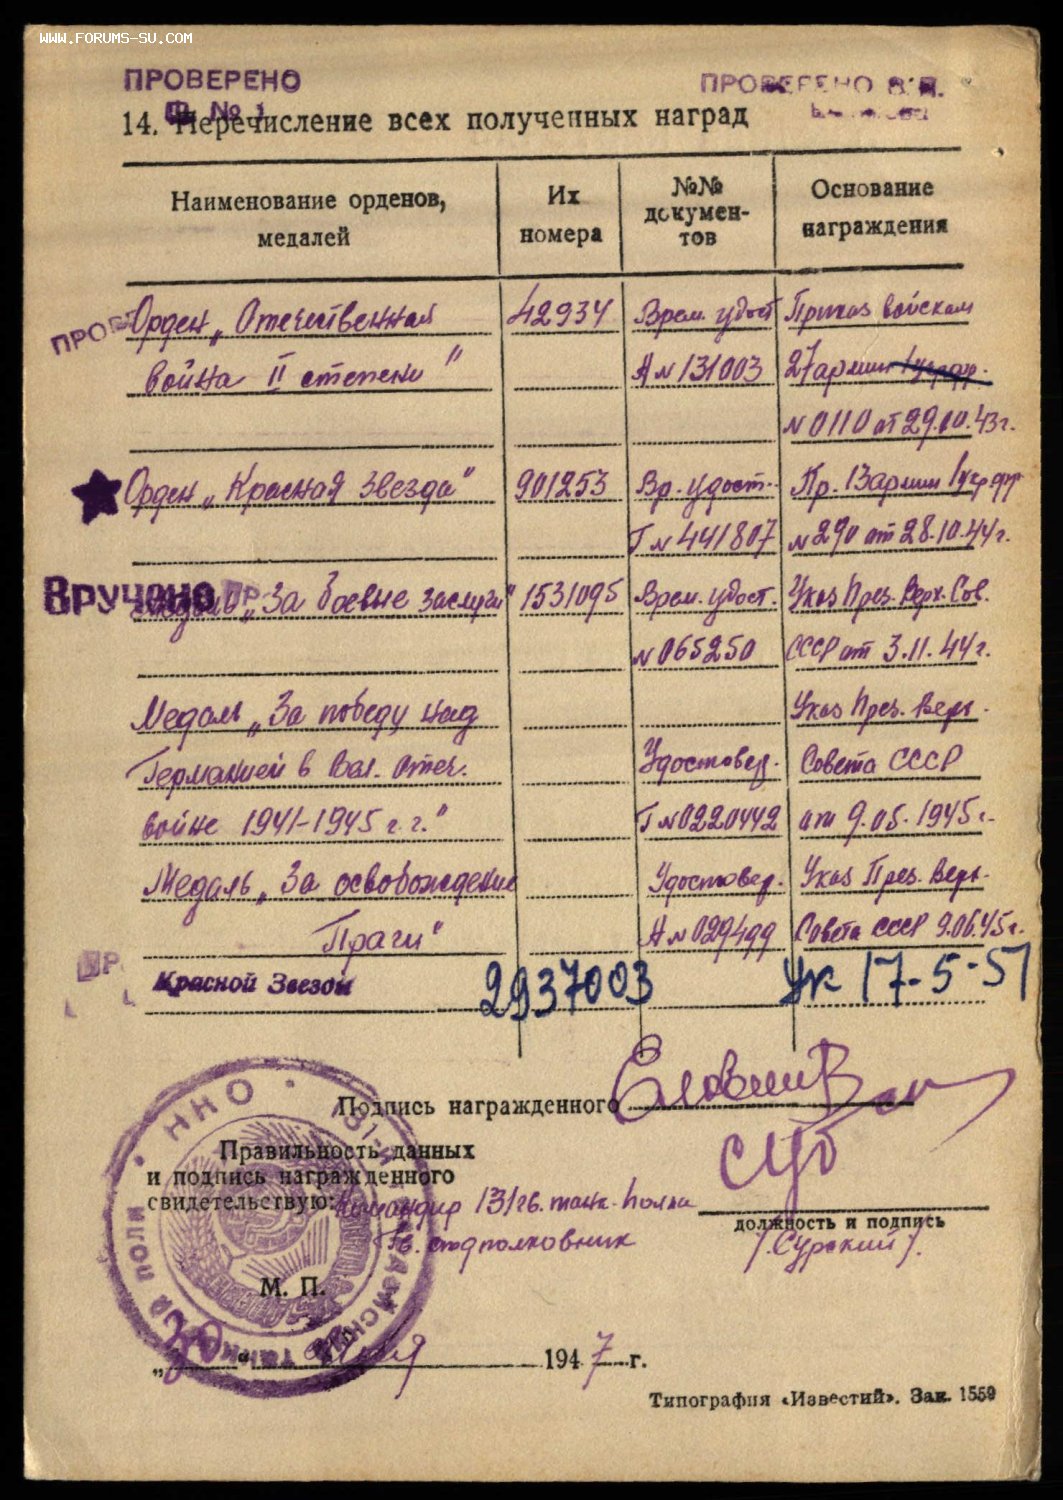 WWW.FORUMS-SU.COM
ПРОВЕРЕНО
ПРОВЕРЕНО
№ 1
14. Перечисление всех полученных наград
Наименование орденов, медалей
Их номера
№№ докумен-тов
Основание награждения
ПРОВЕ
Орден „Отечественная 42934 Врем. удост Приказ войскам
война II степени" А № 131003 27 армии 1 укр.фр.
№ 0110 от 29.10.43г.
Орден „Красная Звезда" 901253 Вр. удост. Пр. 13 армии 1 укр фр
Г № 441807 № 290 от 28.10.44г.
Вручено ПР
Медаль „За боевые заслуги" 1531095 Врем. удост. Указ През. Верх. Сов.
№ 065250 СССР от 3.11.44г.
Медаль „За победу над Указ През. Верх.
Германией в Вел. Отеч. Удостовер. Совета СССР
войне 1941-1945 г.г." Г № 0220442 от 9.05.1945г.
Медаль „За освобождение Удостовер. Указ През. Верх.
Праги" А № 029499 Совета СССР 9.06.45г.
ПР
Красной Звезды 2937003 Ук 17-5-51
Подпись награжденного
Правильность данных
и подпись награжденного
свидетельствую: Командир 131 гв. танк. полка
Гв. подполковник /Сурский/.
должность и подпись
ННО
М. П.
„30" мая 1947 г.
Типография «Известий». Зак. 1559